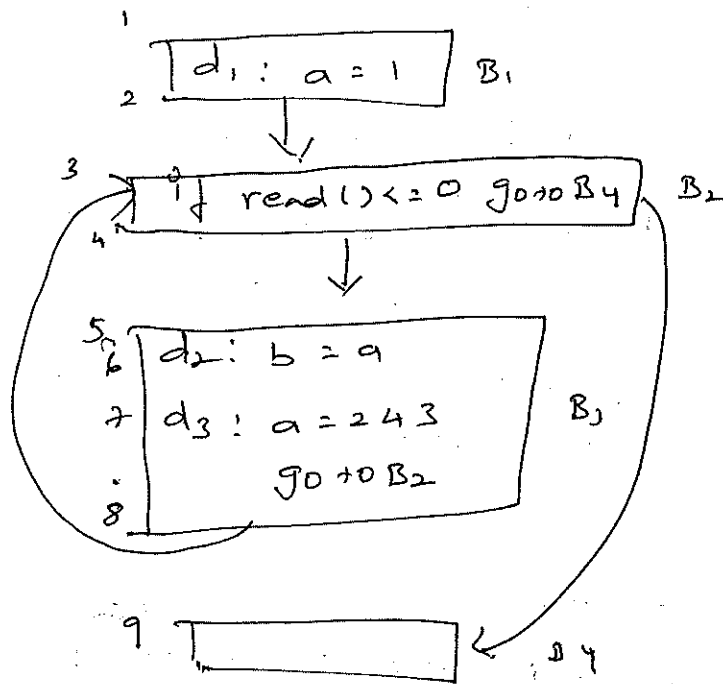 1
d1 : a = 1 B1
2
3
if read() <= 0 goto B4 B2
4
5
6 d2 : b = a
7 d3 : a = 243 B3
goto B2
8
9
B4